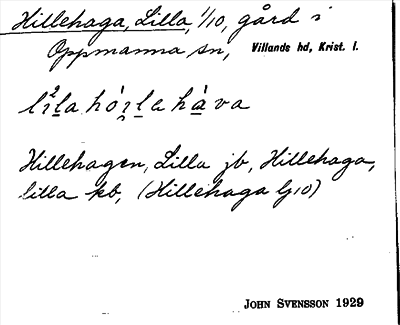 Hillehaga, Lilla, 1/10, gård i
Oppmanna sn, Villands hd, Krist. l.
Hillehagen, Lilla jb, Hillehaga,
lilla kb, (Hillehaga lj10)
JOHN SVENSSON 1929